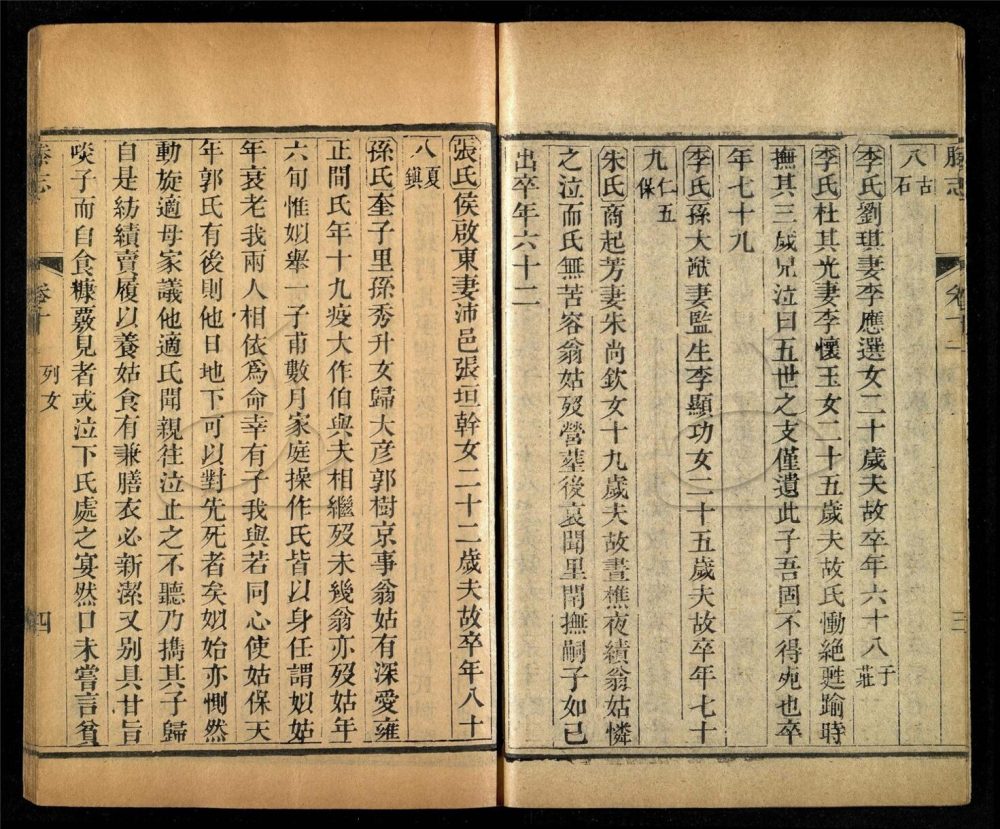 滕志
卷十二
三
八古石
李氏劉琪妻李應選女二十歲夫故卒年六十八于莊
李氏杜其光妻李懷玉女二十五歲夫故氏慟絶甦踰時
撫其三歲兒泣曰五世之支僅遺此子吾固不得死也卒
年七十九
李氏孫大猷妻監生李顯功女二十五歲夫故卒年七十
九仁五保
朱氏商起芳妻朱尚欽女十九歲夫故晝樵夜績翁姑憐
之泣而氏無苦容翁姑歿營葬後哀聞里閈撫嗣子如已
出卒年六十二
張氏侯啟東妻沛邑張垣幹女二十二歲夫故卒年八十
八夏鎮
孫氏奎子里孫秀升女歸大彦郭樹京事翁姑有深愛雍
正間氏年十九疫大作伯與夫相繼歿未幾翁亦歿姑年
六旬惟姒舉一子甫數月家庭操作氏皆以身任謂姒姑
年衰老我兩人相依爲命幸有子我與若同心使姑保天
年郭氏有後則他日地下可以對先死者矣姒始亦惻然
動旋適母家議他適氏聞親往泣止之不聽乃擕其子歸
自是紡績賣履以養姑食有兼膳衣必新潔又别具甘旨
啖子而自食糠覈見者或泣下氏處之宴然口未嘗言貧
滕志
卷十
列女
四